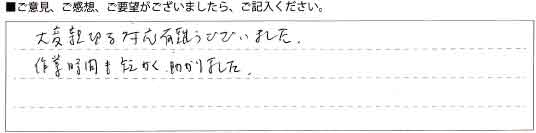 ■ご意見、ご感想、ご要望がございましたら、ご記入ください。
大変親切な対応有難うございました。
作業時間も短かく、助かりました。